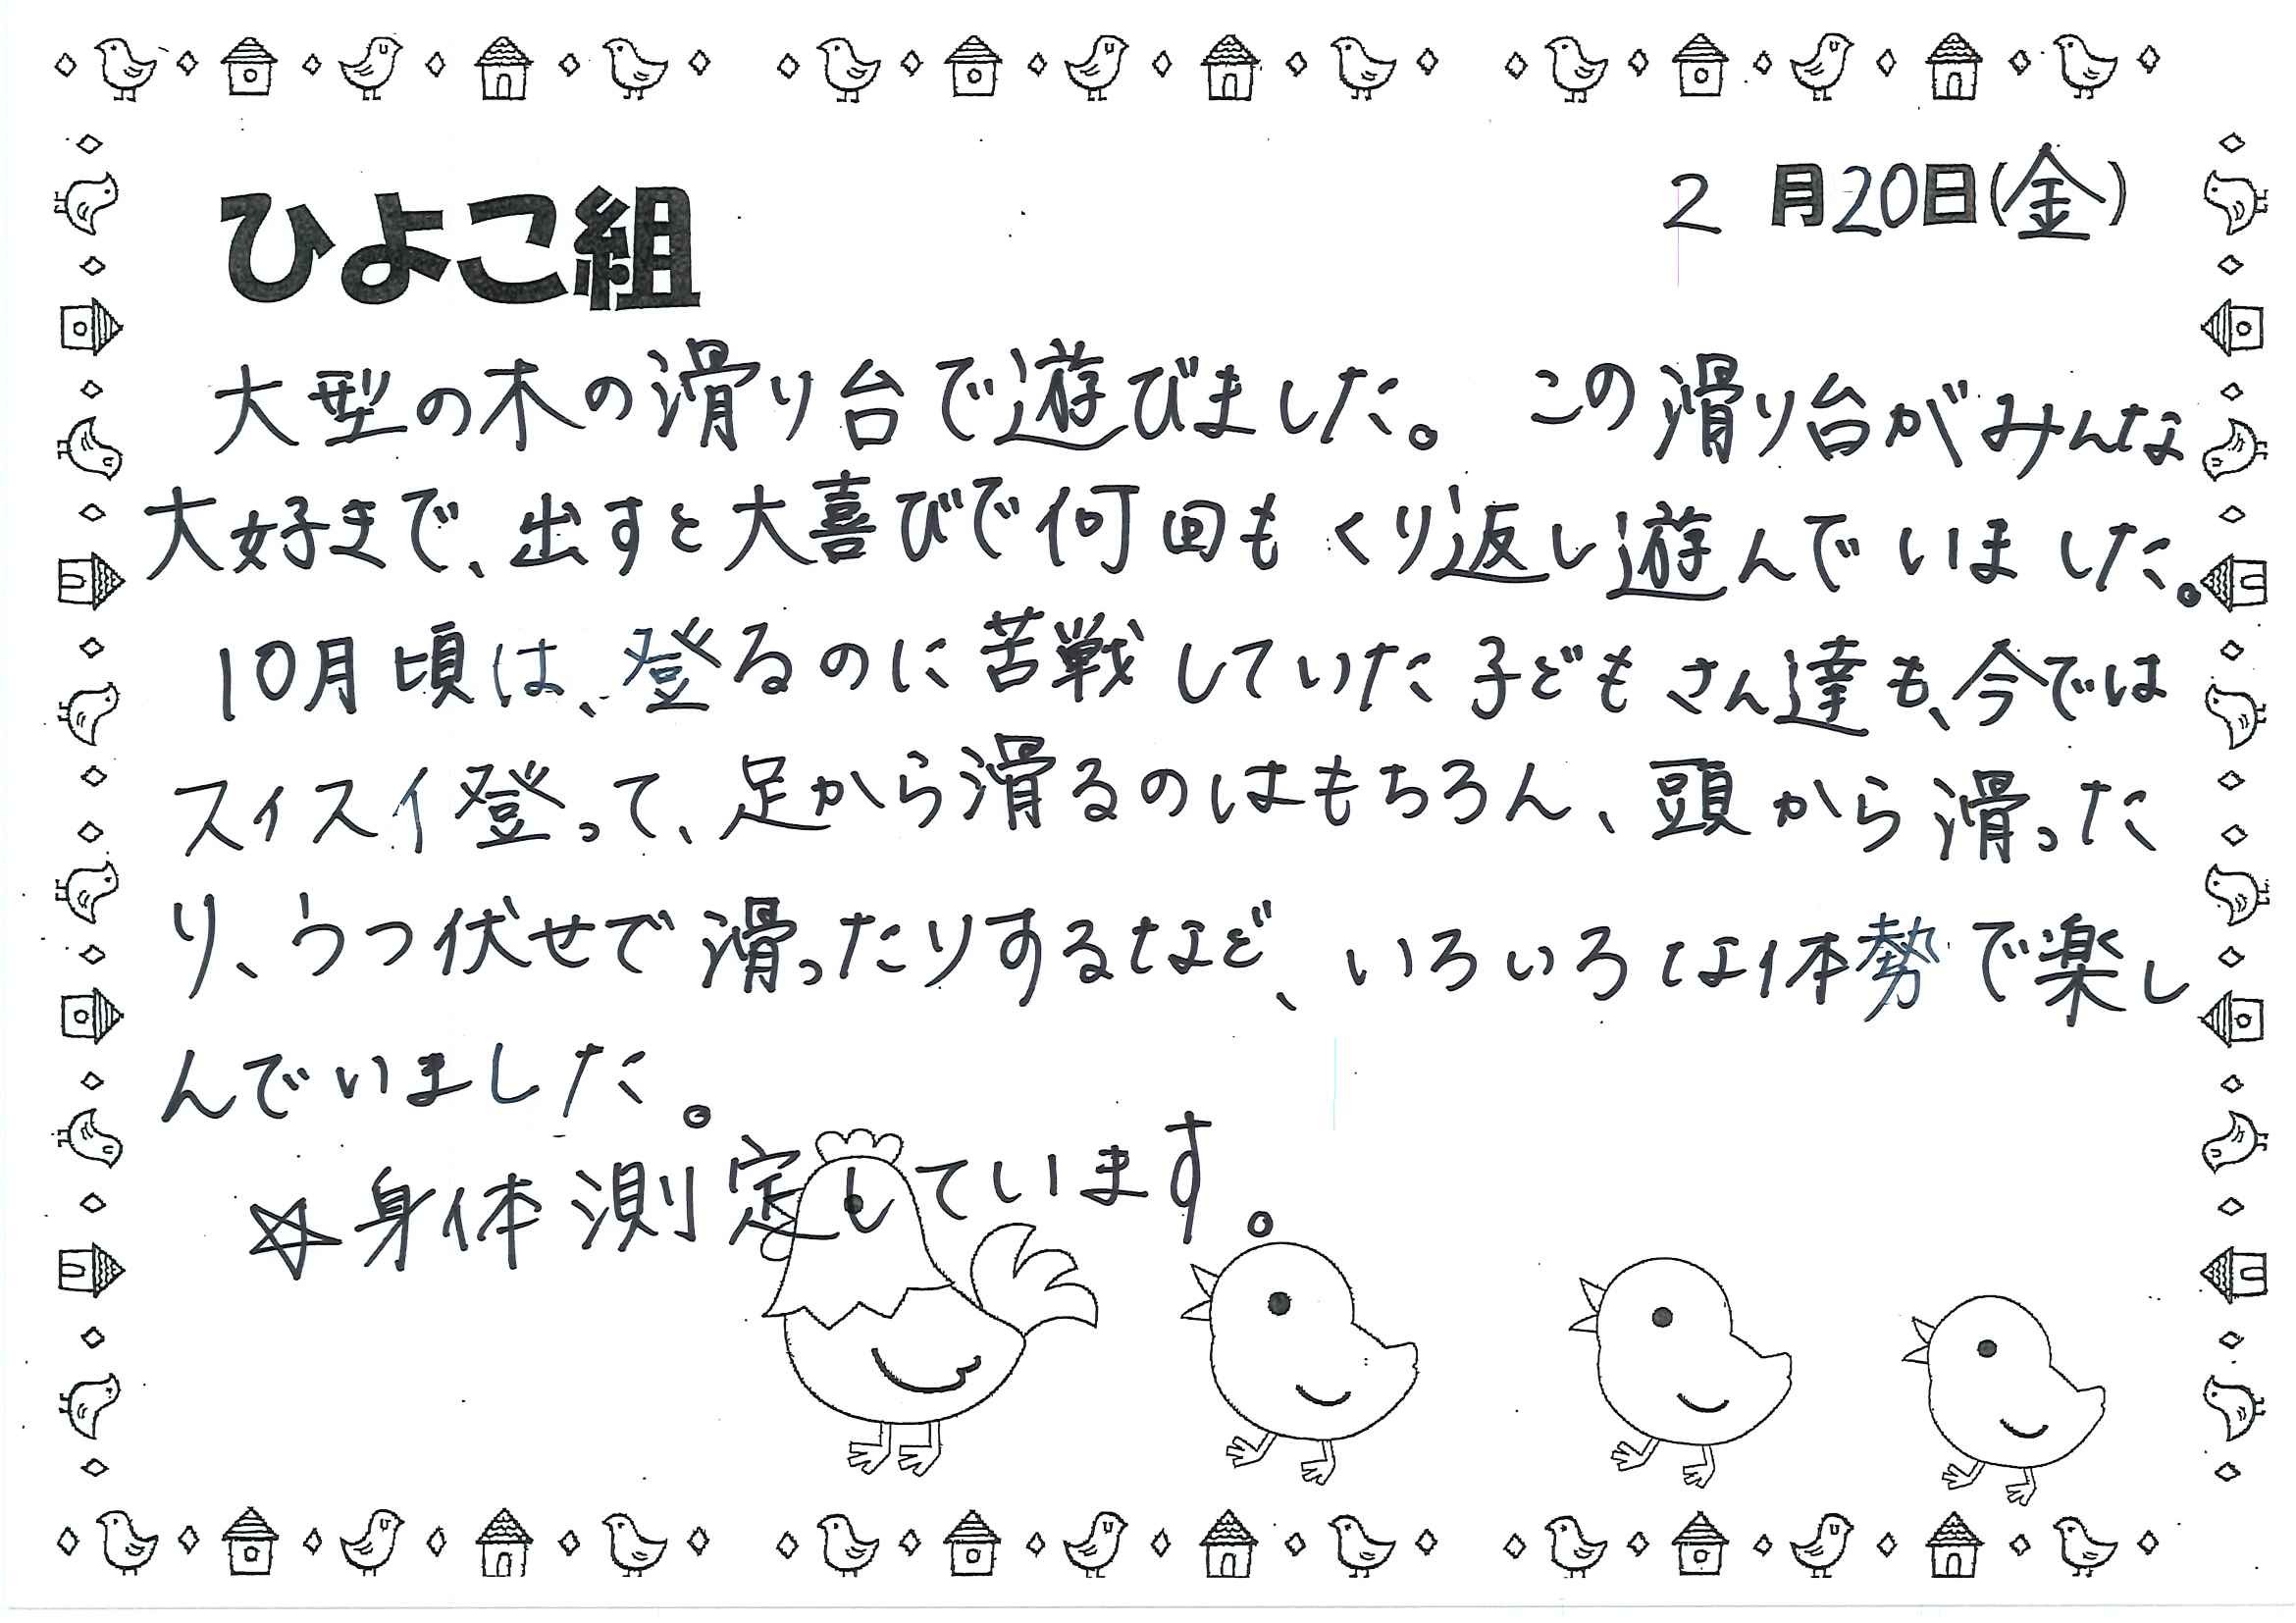 ひよこ組
2月20日(金)
大型の木の滑り台で遊びました。この滑り台がみんな
大好きで、出すと大喜びで何回もくり返し遊んでいました。
10月頃は、登るのに苦戦していた子どもさん達も、今では
スイスイ登って、足から滑るのはもちろん、頭から滑った
り、うつ伏せで滑ったりするなど、いろいろな体勢で楽し
んでいました。
☆身体測定しています。